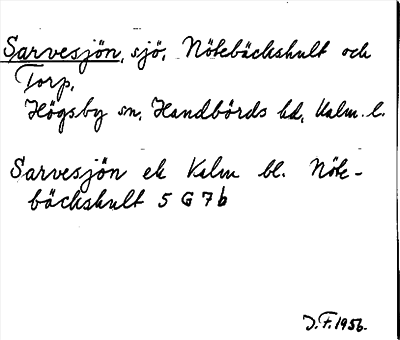 Sarvesjön, sjö, Nötebäckshult och
Torp,
Högsby sn, Handbörds hd, Kalm. l.
Sarvesjön ek Kalm bl. Nöte-
bäckshult 5 G 7 b
J.F. 1956.